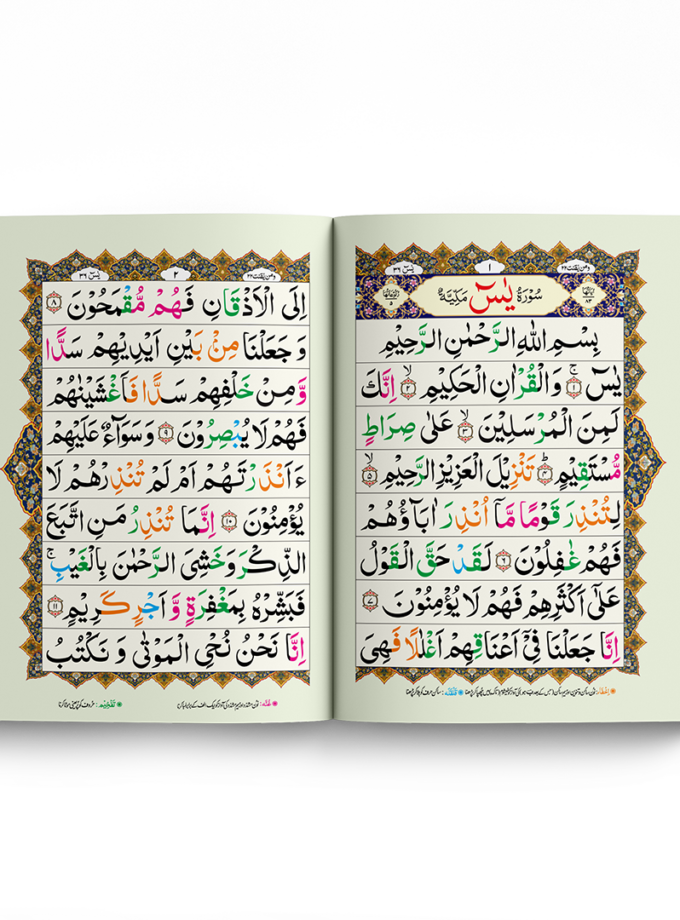 وَمَنْ يَّقْنُتْ ٢٢
١
يٰسٓ ٣٦
سُوْرَةُ يٰسٓ مَكِّيَّةٌ
بِسْمِ اللّٰهِ الرَّحْمٰنِ الرَّحِيْمِ
يٰسٓ ۚ ﴿١﴾ وَالْقُرْاٰنِ الْحَكِيْمِ ۙ ﴿٢﴾ اِنَّكَ
لَمِنَ الْمُرْسَلِيْنَ ۙ ﴿٣﴾ عَلٰى صِرَاطٍ
مُّسْتَقِيْمٍ ؕ ﴿٤﴾ تَنْزِيْلَ الْعَزِيْزِ الرَّحِيْمِ ۙ ﴿٥﴾
لِتُنْذِرَ قَوْمًا مَّاۤ اُنْذِرَ اٰبَآؤُهُمْ
فَهُمْ غٰفِلُوْنَ ﴿٦﴾ لَقَدْ حَقَّ الْقَوْلُ
عَلٰۤى اَكْثَرِهِمْ فَهُمْ لَا يُؤْمِنُوْنَ ﴿٧﴾
اِنَّا جَعَلْنَا فِيْۤ اَعْنَاقِهِمْ اَغْلٰلًا فَهِيَ
وَمَنْ يَّقْنُتْ ٢٢
٢
يٰسٓ ٣٦
اِلَى الْاَذْقَانِ فَهُمْ مُّقْمَحُوْنَ ﴿٨﴾
وَ جَعَلْنَا مِنْۢ بَيْنِ اَيْدِيْهِمْ سَدًّا
وَّ مِنْ خَلْفِهِمْ سَدًّا فَاَغْشَيْنٰهُمْ
فَهُمْ لَا يُبْصِرُوْنَ ﴿٩﴾ وَ سَوَآءٌ عَلَيْهِمْ
ءَاَنْذَرْتَهُمْ اَمْ لَمْ تُنْذِرْهُمْ لَا
يُؤْمِنُوْنَ ﴿١٠﴾ اِنَّمَا تُنْذِرُ مَنِ اتَّبَعَ
الذِّكْرَ وَ خَشِيَ الرَّحْمٰنَ بِالْغَيْبِ ۚ
فَبَشِّرْهُ بِمَغْفِرَةٍ وَّ اَجْرٍ كَرِيْمٍ ﴿١١﴾
اِنَّا نَحْنُ نُحْيِ الْمَوْتٰى وَ نَكْتُبُ